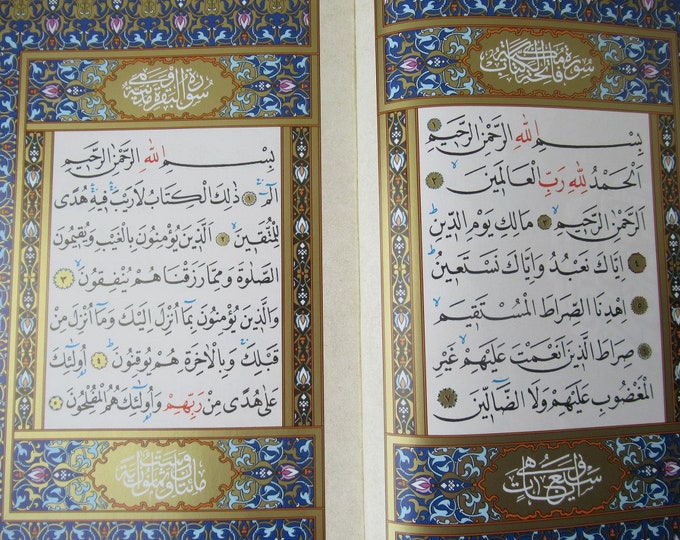 سورة فاتحة الكتاب مكية
بِسْمِ اللهِ الرَّحْمٰنِ الرَّحِيمِ ١
اَلْحَمْدُ لِلّٰهِ رَبِّ الْعَالَمِينَ ٢
اَلرَّحْمٰنِ الرَّحِيمِ ٣ مَالِكِ يَوْمِ الدِّينِ
٤ اِيَّاكَ نَعْبُدُ وَاِيَّاكَ نَسْتَعِينُ
٥ اِهْدِنَا الصِّرَاطَ الْمُسْتَقِيمَ
٦ صِرَاطَ الَّذِينَ اَنْعَمْتَ عَلَيْهِمْ غَيْرِ
الْمَغْضُوبِ عَلَيْهِمْ وَلَا الضَّٓالِّينَ ٧
وهي سبع آيات
سورة البقرة مدنية وهي
بِسْمِ اللهِ الرَّحْمٰنِ الرَّحِيمِ
الٓمٓ ١ ذٰلِكَ الْكِتَابُ لَا رَيْبَ فِيهِ هُدًى
لِلْمُتَّقِينَ ٢ اَلَّذِينَ يُؤْمِنُونَ بِالْغَيْبِ وَيُقِيمُونَ
الصَّلٰوةَ وَمِمَّا رَزَقْنَاهُمْ يُنْفِقُونَ ٣
وَالَّذِينَ يُؤْمِنُونَ بِمَٓا اُنْزِلَ اِلَيْكَ وَمَٓا اُنْزِلَ مِنْ
قَبْلِكَ وَبِالْاٰخِرَةِ هُمْ يُوقِنُونَ ٤ اُولٰٓئِكَ
عَلٰى هُدًى مِنْ رَبِّهِمْ وَاُولٰٓئِكَ هُمُ الْمُفْلِحُونَ ٥
مائتان وست وثمانون آية